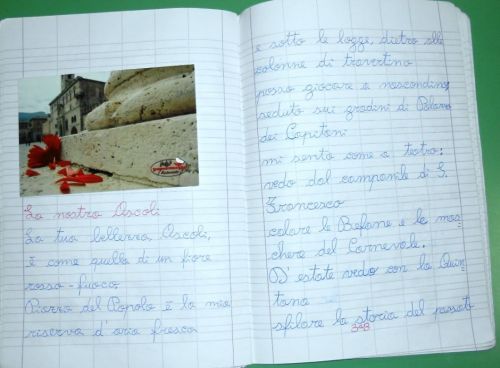 La nostra Ascoli
La tua bellezza, Ascoli,
è come quella di un fiore
rosso-fuoco.
Piazza del Popolo è la mia
riserva d'aria fresca
e sotto le logge, dietro alle
colonne di travertino
posso giocare a nascondino,
seduto sui gradini di Palazzo
dei Capitani
mi sento come a teatro:
vedo dal campanile di S.
Francesco
calare le Befane e le mas
chere del Carnevale.
D'estate vedo con la Quin
tana
sfilare la storia del passato
3ªB